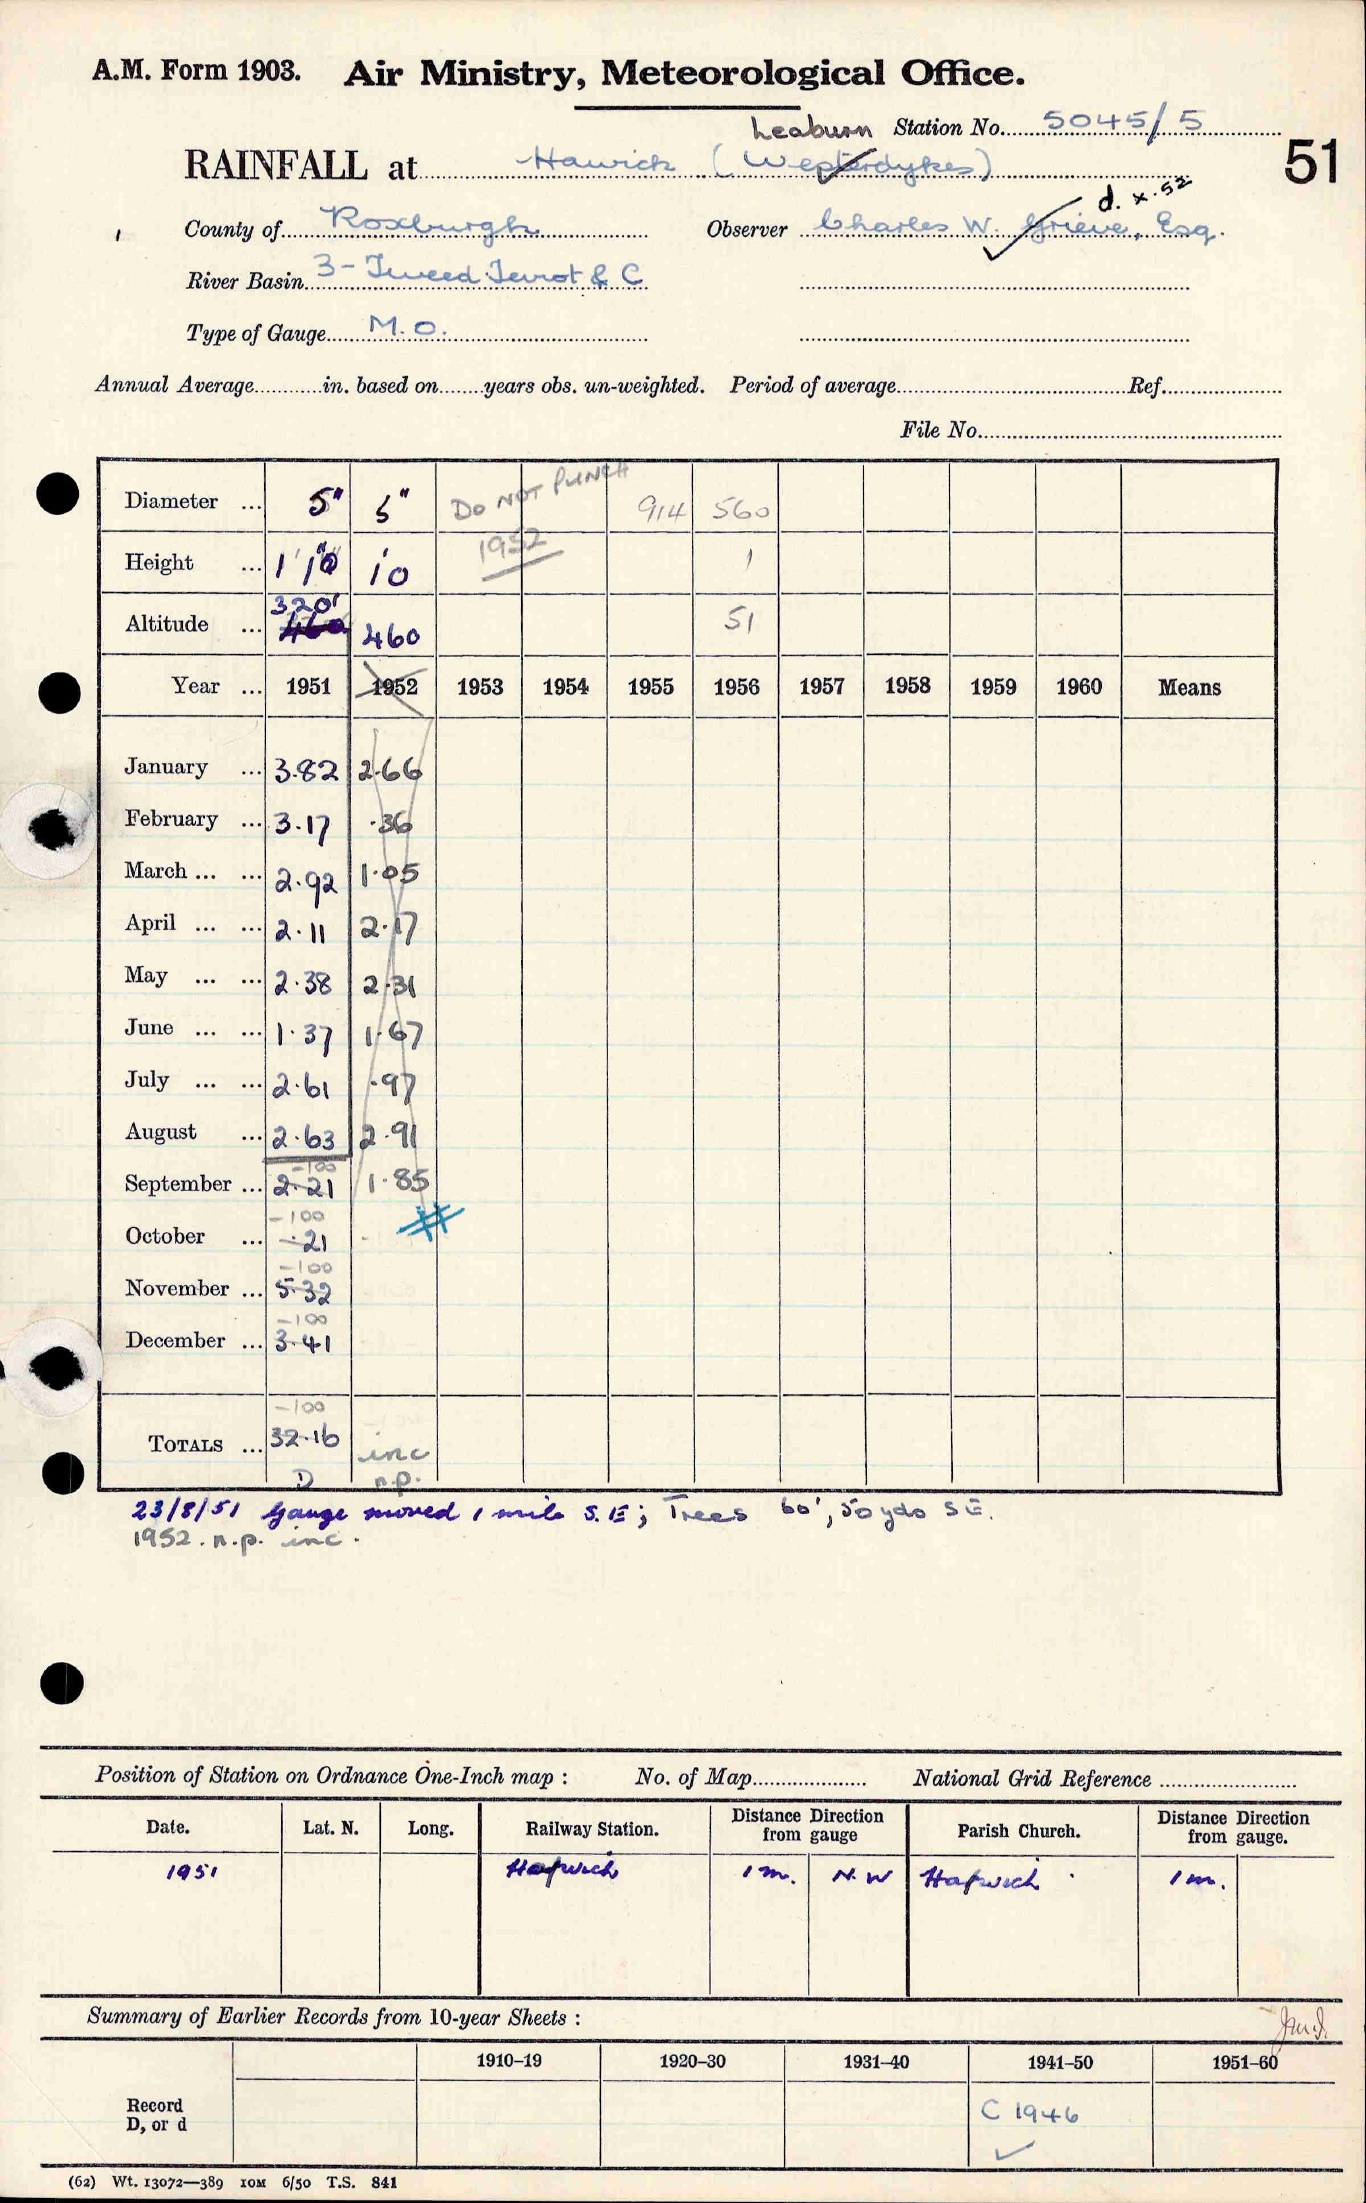 A.M. Form 1903. Air Ministry, Meteorological Office.
Leaburn Station No. 5045/5
RAINFALL at Hawick (Westerdykes)
51
d. x. 52
County of Roxburgh Observer Charles W. Grieve, Esq.
River Basin 3 - Tweed. Teviot & C
Type of Gauge M.O.
Annual Average in. based on years obs. un-weighted. Period of average Ref.
File No.
Diameter ... 5" 5" DO NOT PUNCH 914 560
Height ... 1' 10" 10 1952 1
320'
Altitude ... 460 460 51
Year ... 1951 1952 1953 1954 1955 1956 1957 1958 1959 1960 Means
January ... 3.82 2.66
February ... 3.17 .36
March ... ... 2.92 1.05
April ... ... 2.11 2.17
May ... ... 2.38 2.31
June ... ... 1.37 1.67
July ... ... 2.61 .97
August ... 2.63 2.91
-100
September ... 2.21 1.85
-100
October ... .21
-100
November ... 5.32
-100
December ... 3.41
-100
TOTALS ... 32.16 inc
D n.p.
23/8/51 Gauge moved 1 mile S.E; Trees 60', 50 yds SE.
1952. n.p. inc.
Position of Station on Ordnance One-Inch map : No. of Map National Grid Reference
Date. Lat. N. Long. Railway Station. Distance Direction from gauge Parish Church. Distance Direction from gauge.
1951 Hawick 1 m. N.W Hawick 1 m.
Summary of Earlier Records from 10-year Sheets :
1910–19 1920–30 1931–40 1941–50 1951–60
Record
D, or d
C 1946
(62) Wt. 13072—389 10M 6/50 T.S. 841